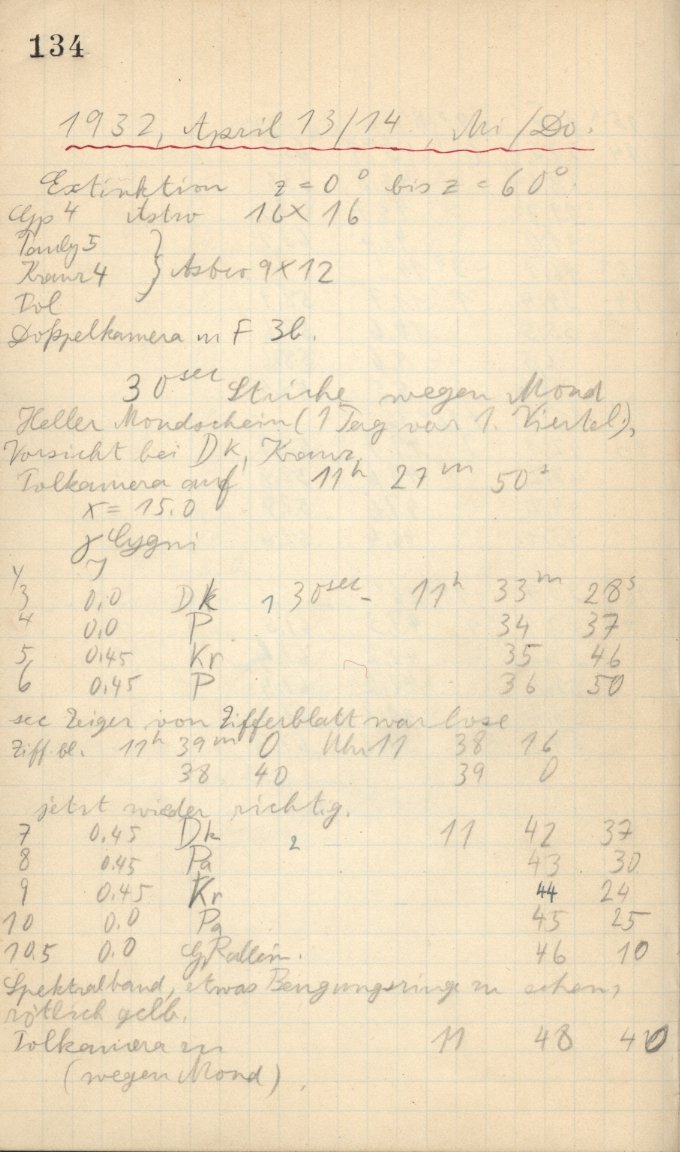 134
1932, April 13/14, Mi/Do.
Extinktion z = 0° bis z = 60°
Astro 16 x 16
5
Kranz 4 } Astro 9 x 12
Tol
Doppelkamera m F 3b.
30 sec Striche wegen Mond
Heller Mondschein (1 Tag vor 1. Viertel),
Vorsicht bei Dk, Kranz
Tolkamera auf 11h 27m 50s
x = 15.0
γ Cygni
y
3 0,0 Dk 1 30sec - 11h 33m 28s
4 0,0 P 34 37
5 0,45 Kr 35 46
6 0,45 P 36 50
sec Zeiger von Zifferblatt war lose
Ziff.bl. 11h 39m 0 Uhr 11 38 16
38 40 39 0
jetzt wieder richtig.
7 0,45 Dk 2 11 42 37
8 0,45 Pa 43 30
9 0,45 Kr 44 24
10 0,0 Pa 45 25
10.5 0,0 46 10
Spektralband, etwas Beugungsringe zu sehen,
rötlich gelb.
Tolkamera zu 11 48 40
(wegen Mond).